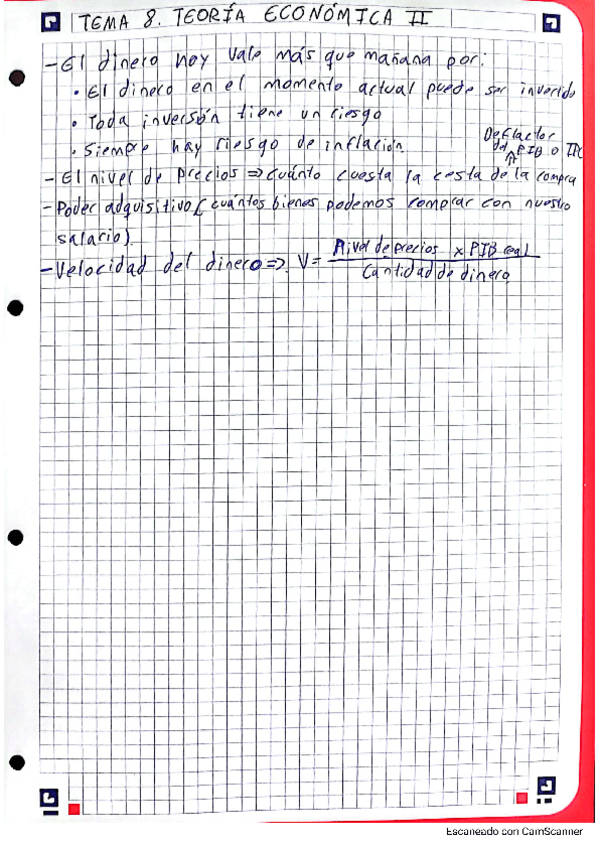 TEMA 8. TEORÍA ECONÓMICA II
- El dinero hoy vale más que mañana por:
• El dinero en el momento actual puede ser invertido
• Toda inversión tiene un riesgo
• Siempre hay riesgo de inflación.
Deflactor
del PIB o IPC
- El nivel de precios ⇒ cuánto cuesta la cesta de la compra
- Poder adquisitivo (cuántos bienes podemos comprar con nuestro
salario)
- Velocidad del dinero ⇒ V = Nivel de precios x PIB real
Cantidad de dinero
Escaneado con CamScanner